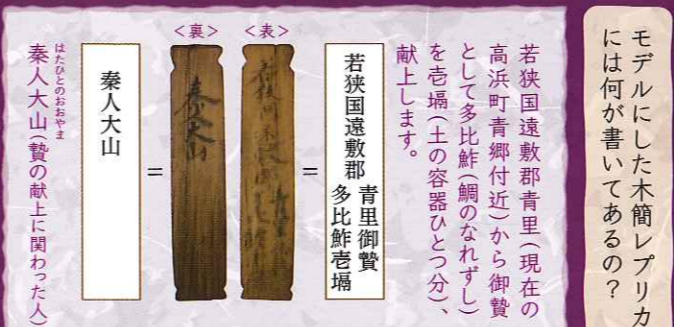 モデルにした木簡レプリカ
には何が書いてあるの？
若狭国遠敷郡青里（現在の
高浜町青郷付近）から御贄
として多比鮓（鯛のなれずし）
を壱堝（土の容器ひとつ分）、
献上します。
＝
若狭国遠敷郡
青里御贄
多比鮓壱堝
＜表＞
＜裏＞
秦人大山
＝
秦人大山
はたひとのおおやま
秦人大山（贄の献上に関わった人）